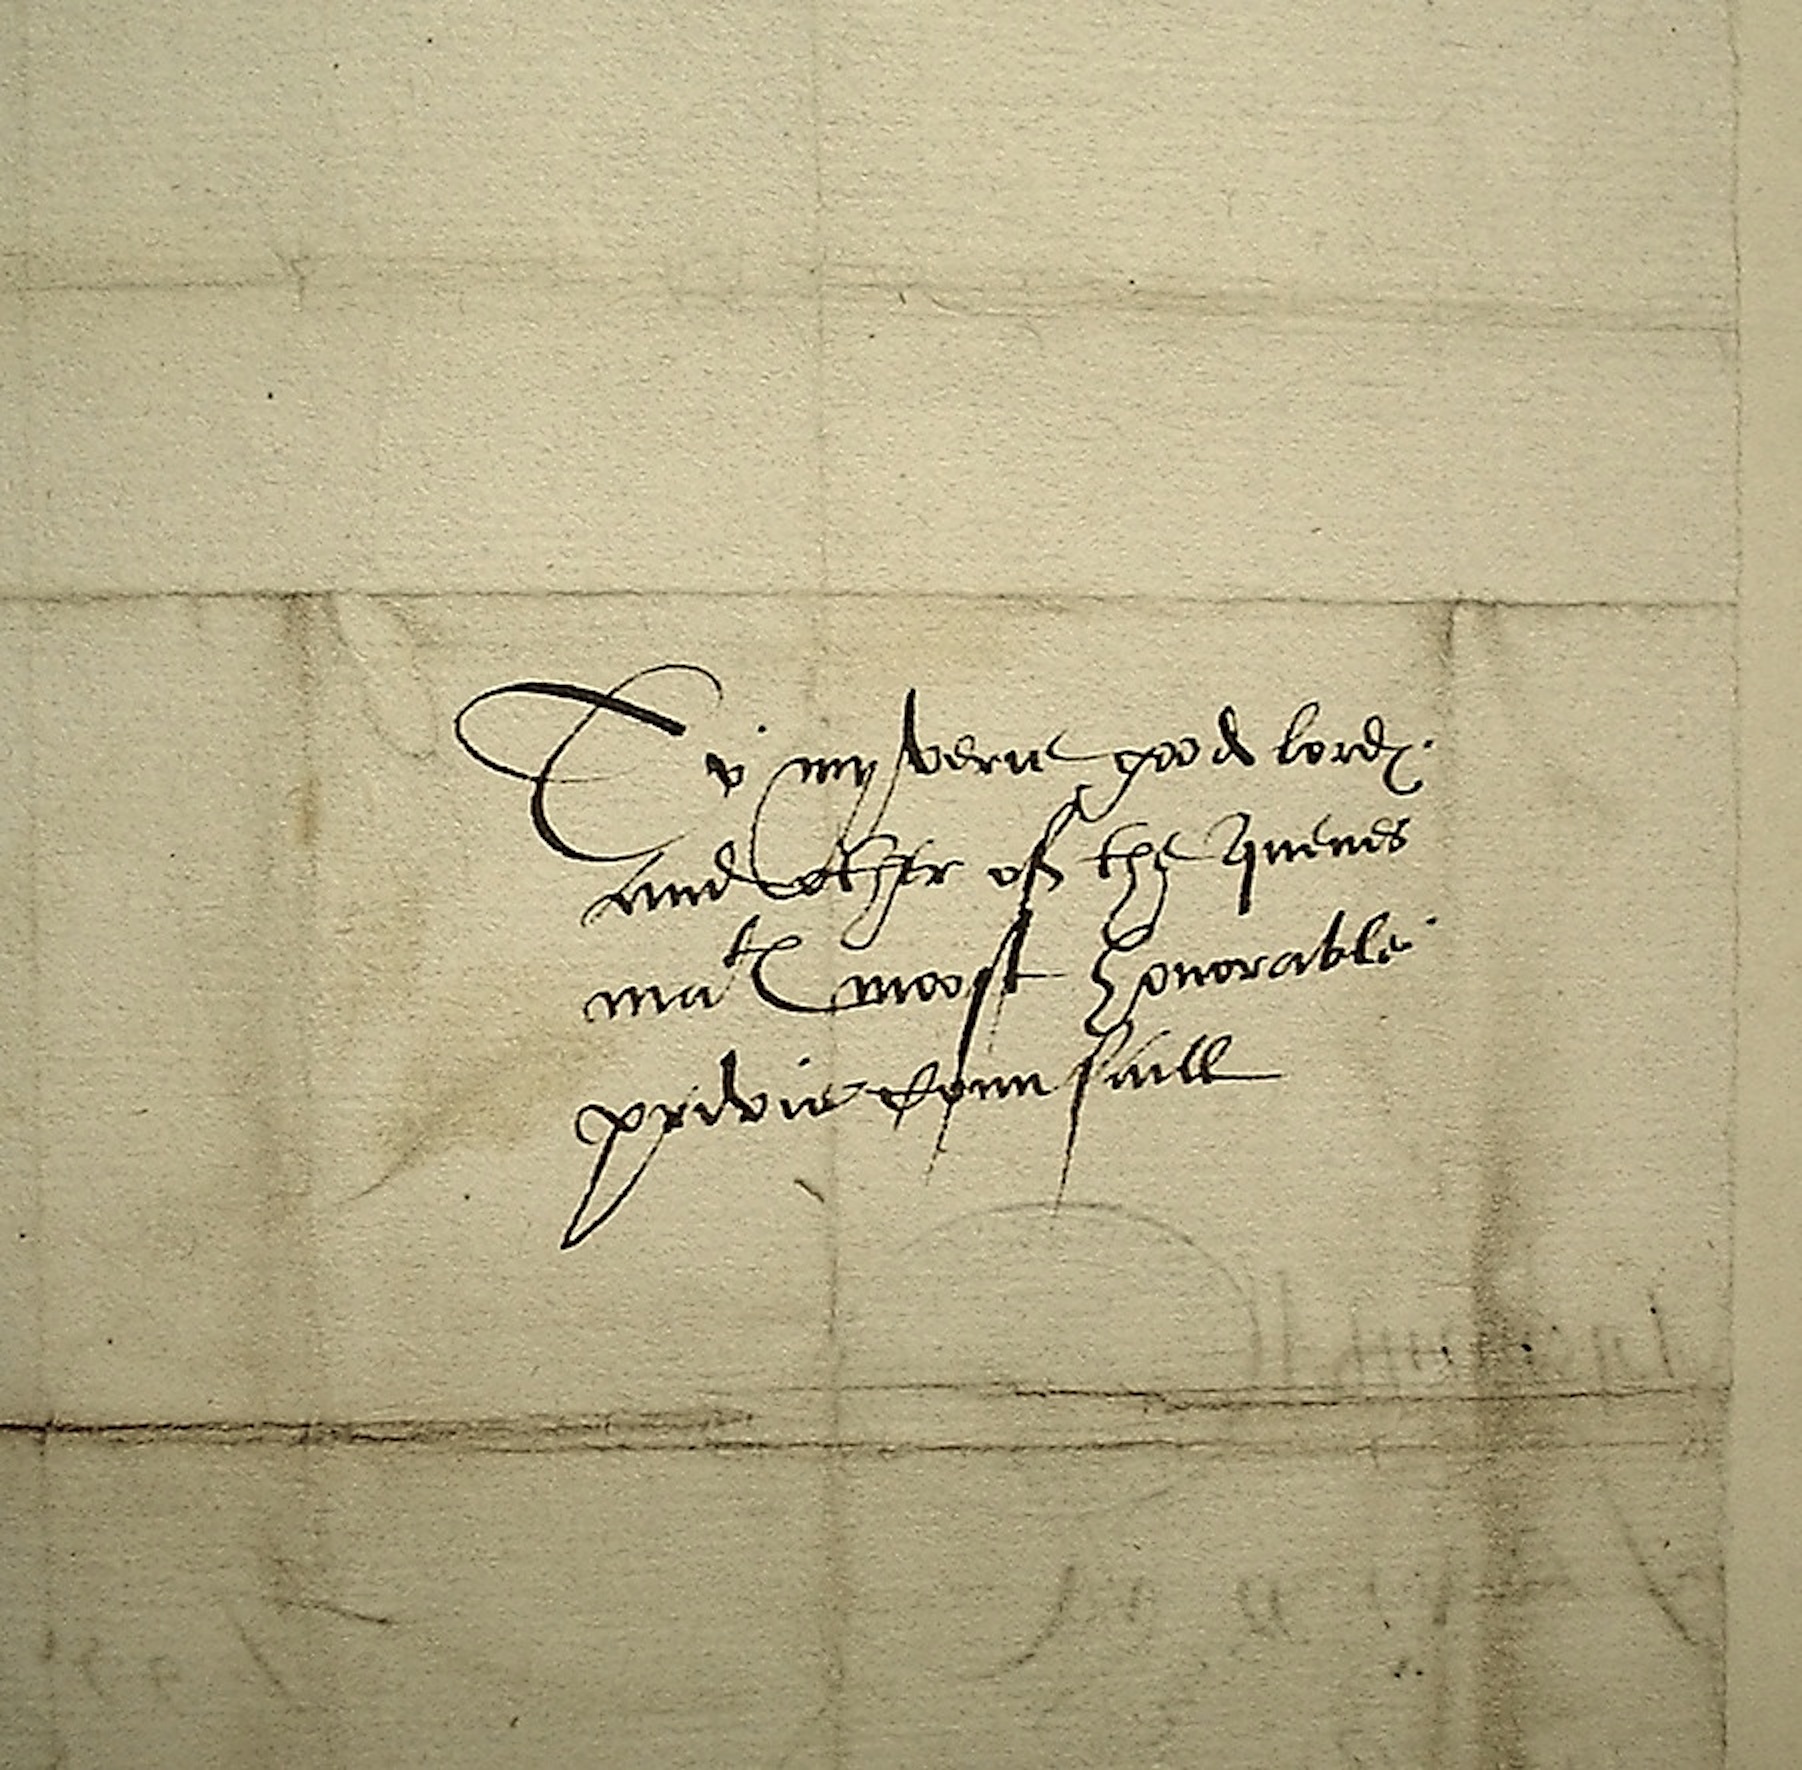 To my verie good lordes
and other of the Quenes
ma^tes moost honorable
privie Counsaill